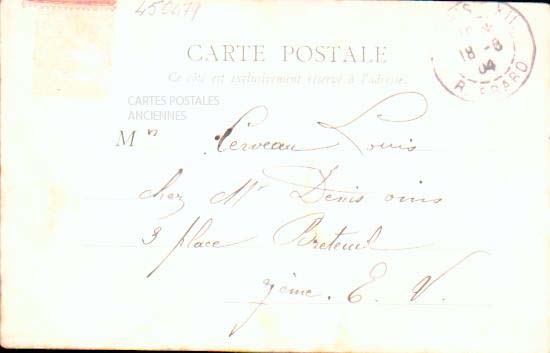 450479
CARTE POSTALE
Ce côté est exclusivement réservé à l'adresse.
18 -8
04
R. ERARD
CARTES POSTALES
ANCIENNES
M Cerveau Louis
chez Mr Denis vins
3 place Breteuil
7ème. E. V.